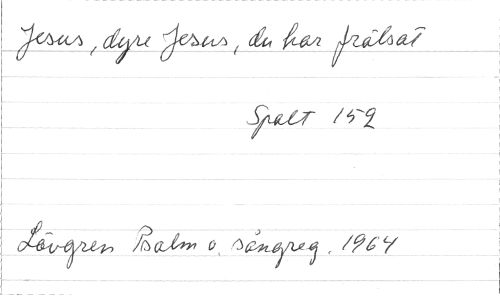 Jesus, dyre Jesus, du har frälsat
Spalt 152
Lövgren Psalm o. sångreg. 1964